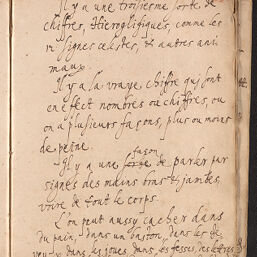 Il y a une troisiesme sorte de
chiffres, Hieroglifiques, comme les
signes celestes, & autres ani
maux.
Il y a la vraye chiffre qui sont
en effect nombres ou chiffres, ou
on a plusieurs façons, plus ou moins
de peine.
façon
Il y a une sorte de parler par
signes des mains bras & jambes,
voire de tout le corps.
L'on peut aussy cacher dans
du pain, dans un baston, dans les
dans les joues, dans les fesses, des lettres